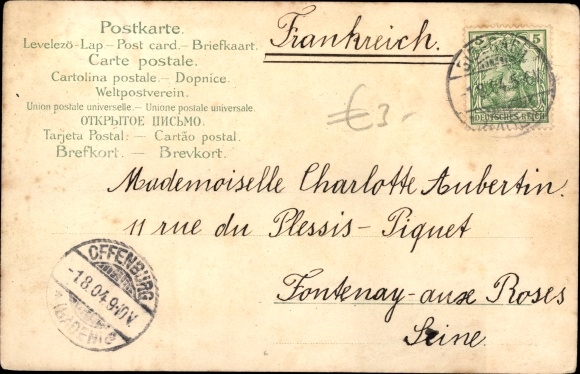 Postkarte.
Levelezö-Lap. – Post card. – Briefkaart.
Carte postale.
Cartolina postale. – Dopnice.
Weltpostverein.
Union postale universelle. – Unione postale universale.
ОТКРЫТОЕ ПИСЬМО.
Tarjeta Postal: – Cartão postal.
Brefkort. – Brevkort.
Frankreich.
5
DEUTSCHES REICH
€ 3.-
Mademoiselle Charlotte Aubertin.
11 rue du Plessis-Piquet
Fontenay-aux Roses
Seine.
OFFENBURG
-1.8.04.9-10V.
(BADEN)